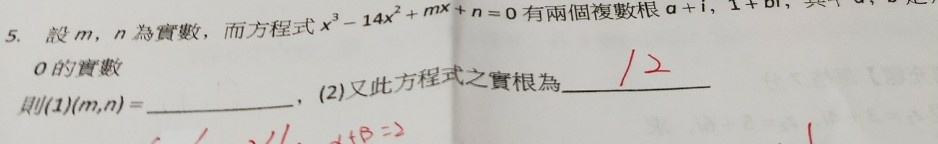 5. 設 m, n 為實數，而方程式 x³ − 14x² + mx + n = 0 有兩個複數根 a + i, 1 + bi,
0 的實數
則(1)(m,n) = ________, (2)又此方程式之實根為 12
α+β=2